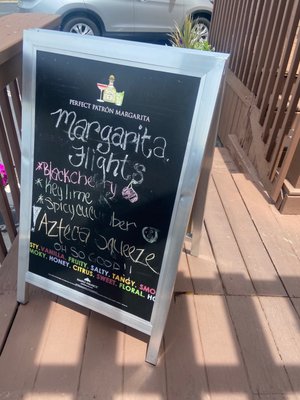 PERFECT PATRÓN MARGARITA
Margarita
Flights
*Black cherry
*Key lime
*Spicy cucumber
Azteca Squeeze
OH SO GOOD!!
VANILLA. FRUITY. SALTY. TANGY.
HONEY. CITRUS. SWEET. FLORAL.